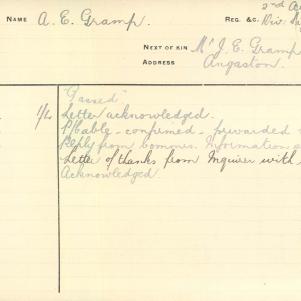 2nd
NAME A. E. Gramp. REG. &C. Div.
NEXT OF KIN Mr J. E. Gramp
ADDRESS Angaston.
"Gassed"
1/2 Letter acknowledged.
P/bable - confirmed - forwarded
Reply from Commrs. Information
Letter of thanks from Inquirer with
Acknowledged.